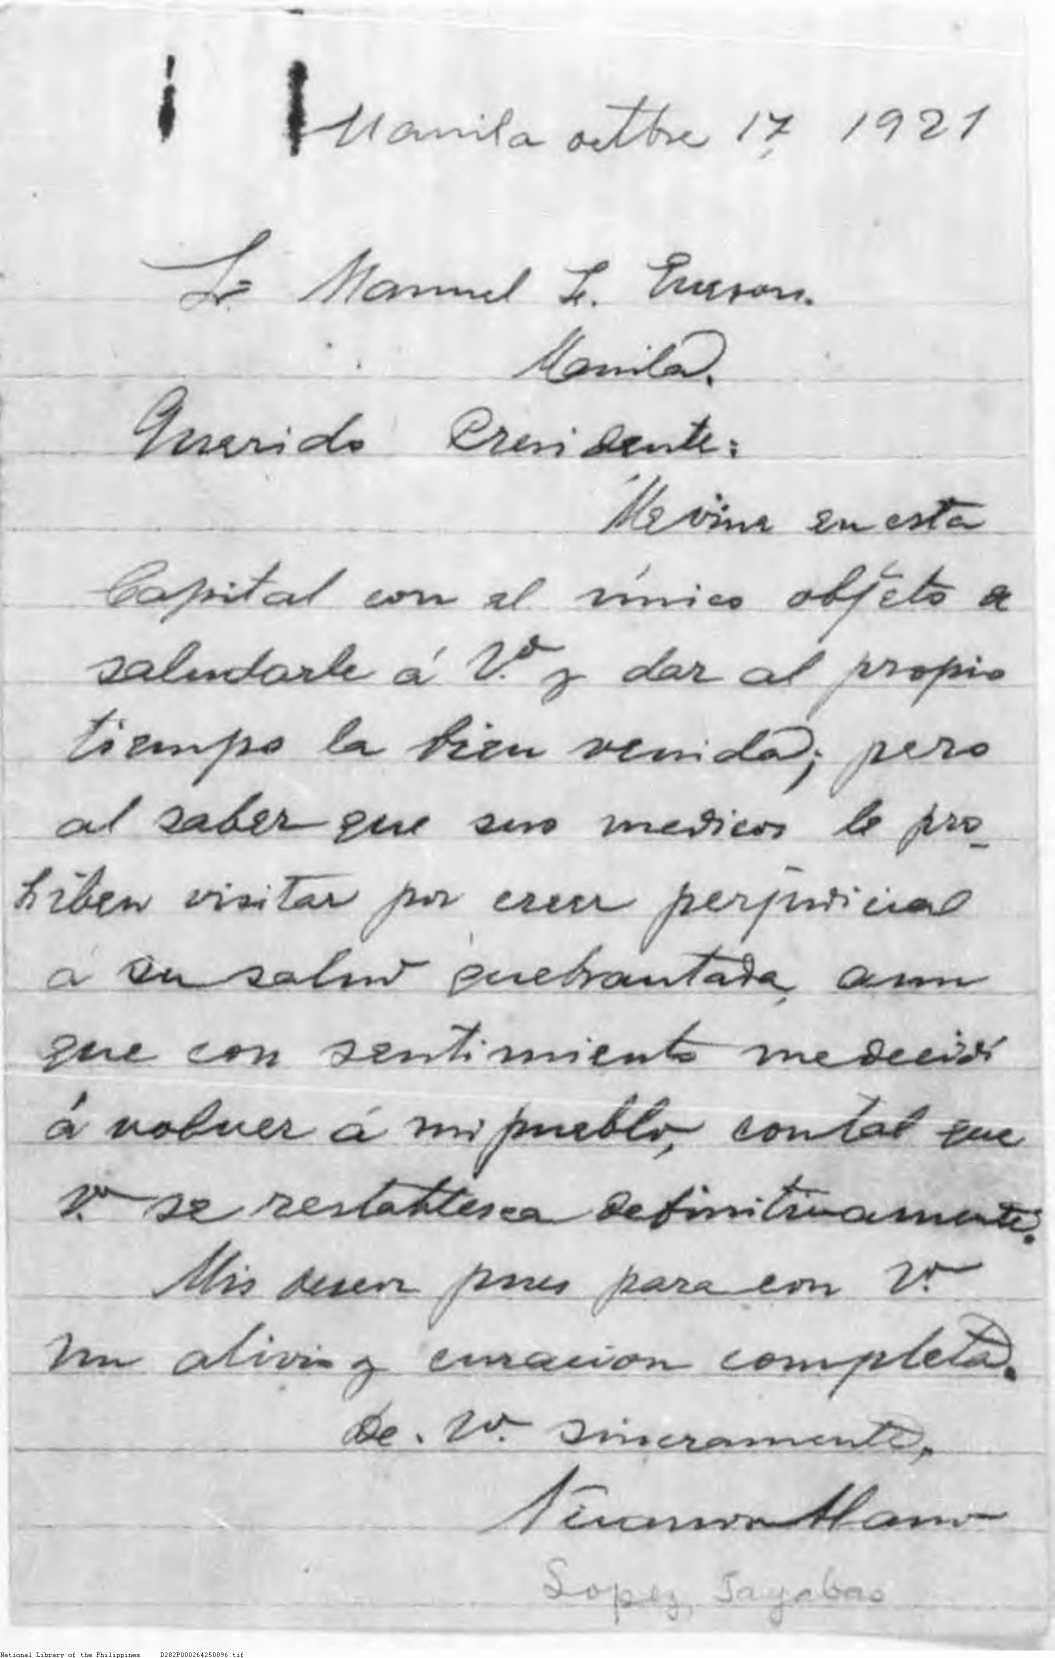 Manila octbre 17, 1921
Sr. Manuel L. Quezon.
Manila.
Querido Presidente:
Me vine en esta
Capital con el único objeto a
saludarle á Vd. y dar al propio
tiempo la bien venida; pero
al saber que sus medicos le pro-
hiben visitar por creer perjudicial
á su salud quebrantada, aun
que con sentimiento me decidí
á volver á mi pueblo, con tal que
Vd. se restablesca definitivamente.
Mis deseos pues para con Vd.
un alivio y curacion completa.
De. Vd. sinceramente,
Lopez, Tayabas
National Library of the Philippines D282P000264250096.tif